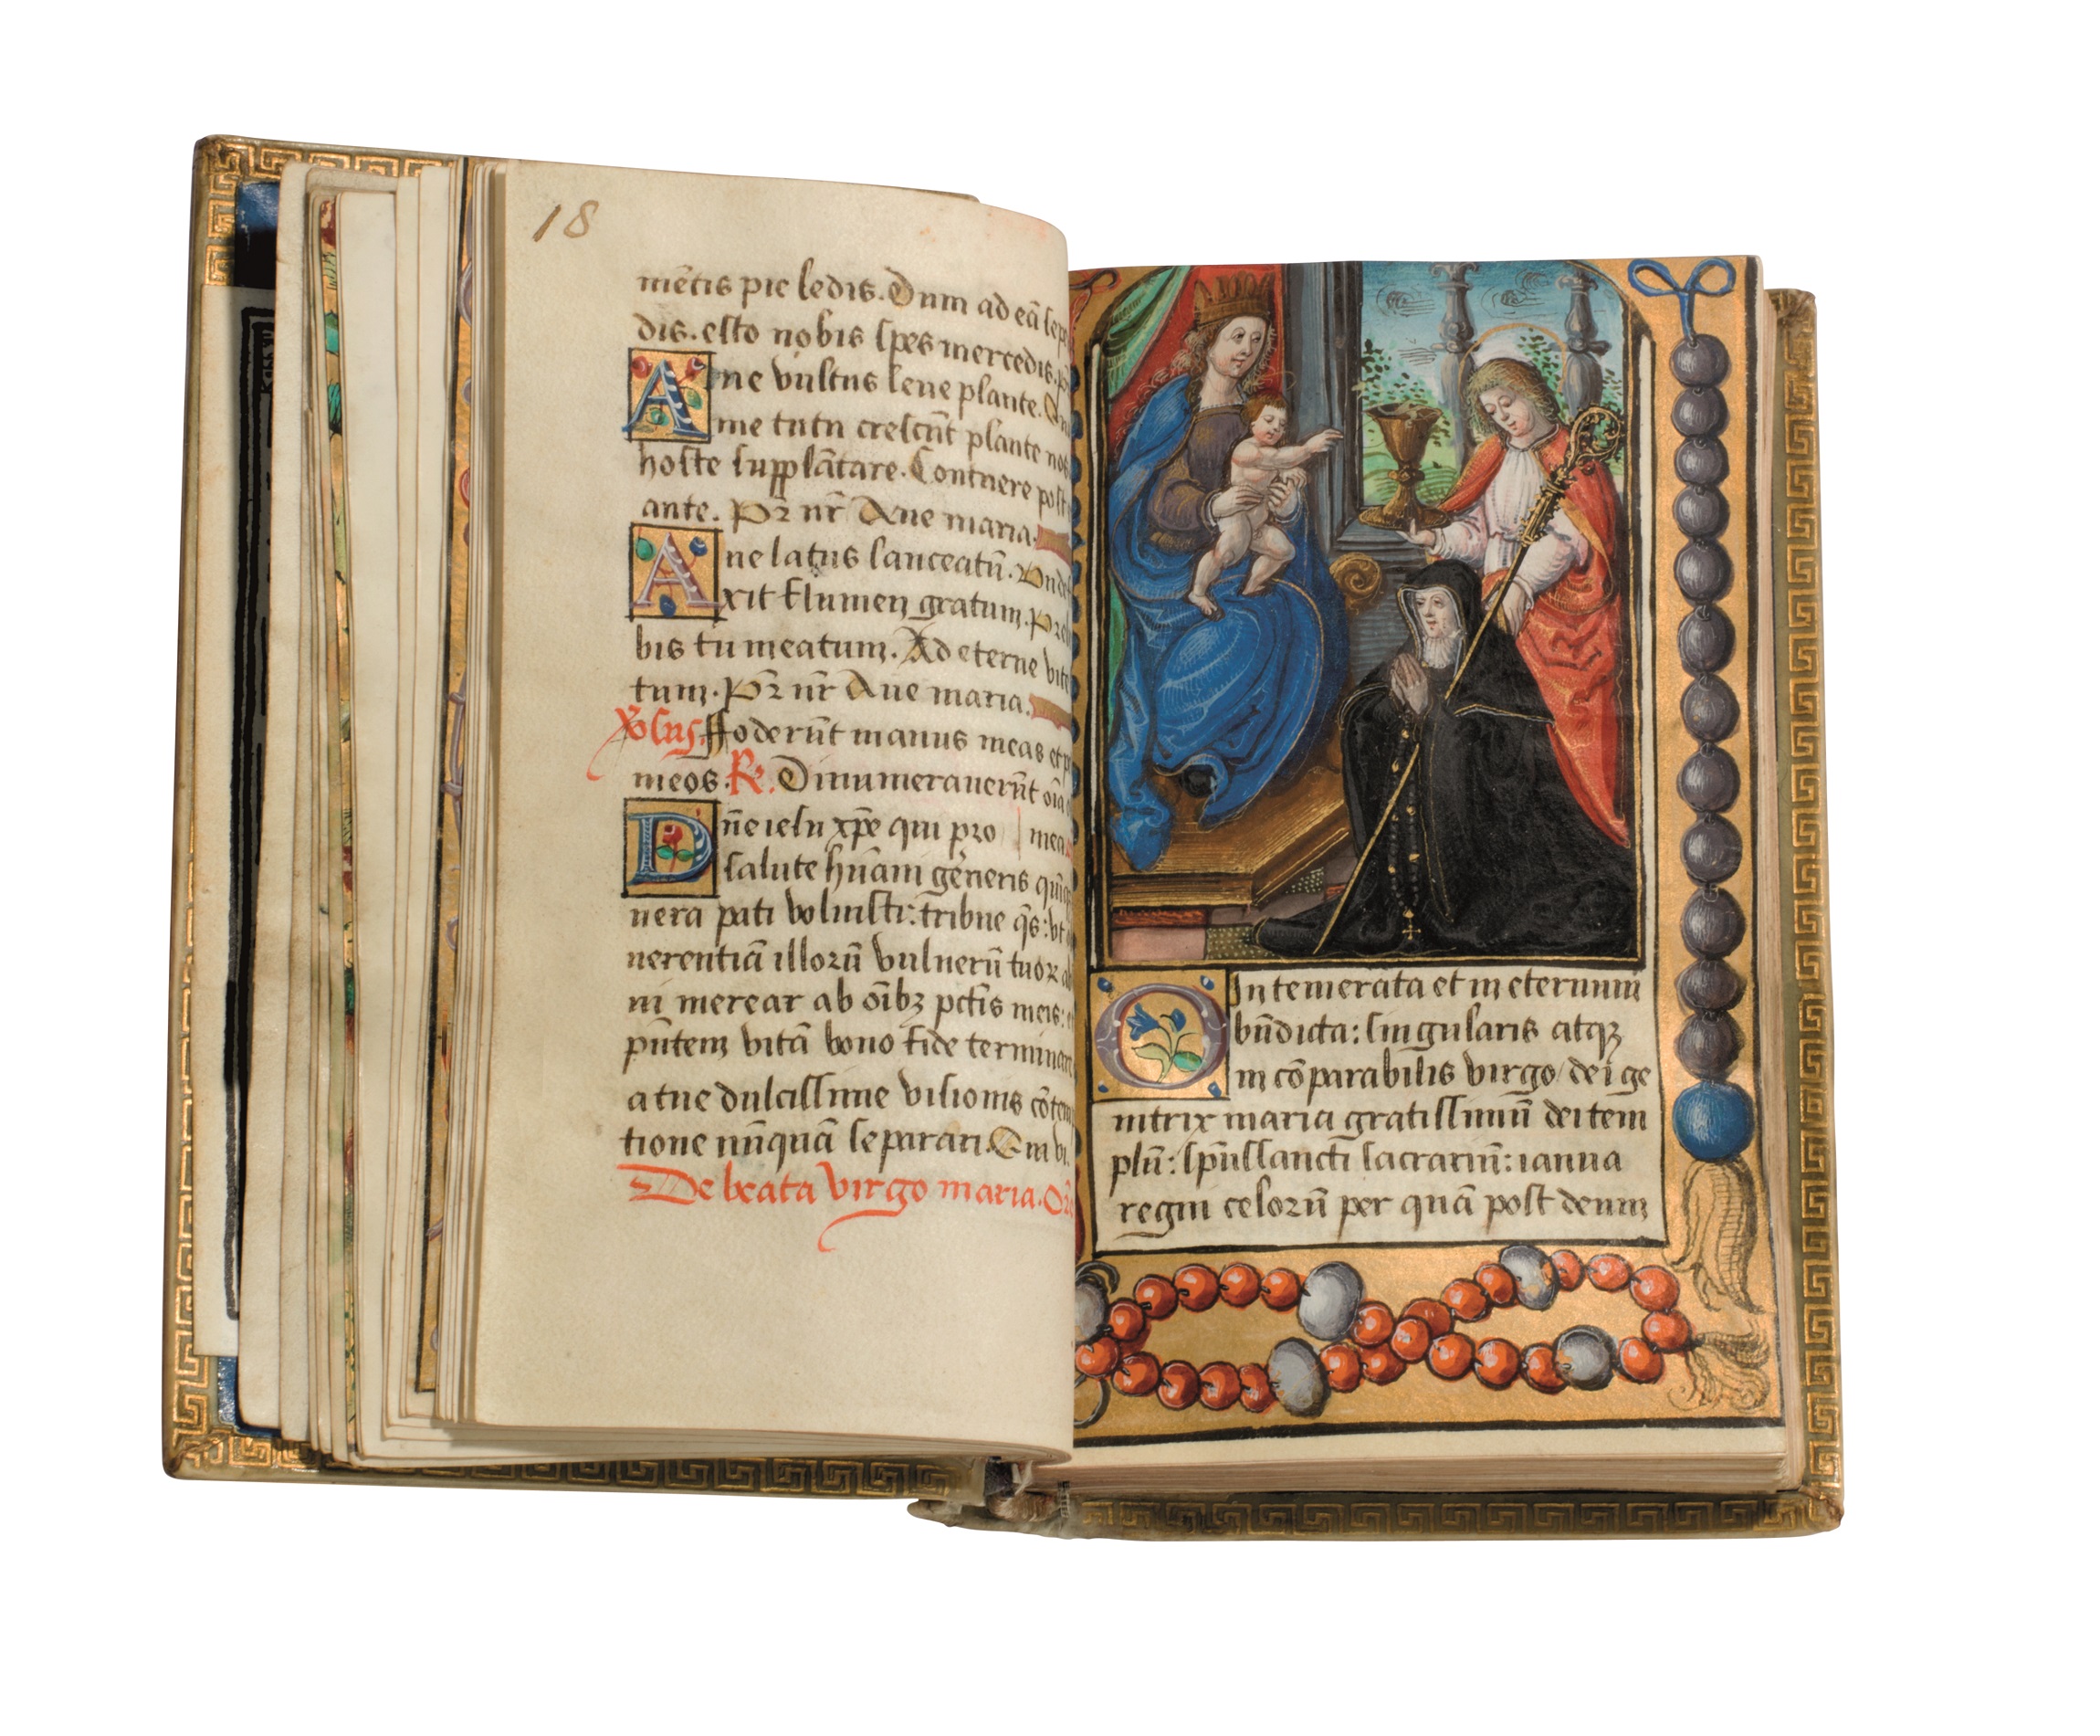 18
mētis pie ledis. Dum ad eā
dis. esto nobis spes mercedis.
Aue vultus leue plante.
me tutu crescūt plante
hoste supplātare. Contuere
ante. Pr̄ nr̄ Aue maria.
Aue latus lanceatū.
xit flumen gratum.
bis tu meatum. Ad eterne
tum. Pr̄ nr̄ Aue maria.
ffoderūt manus meas et
meos. R̷. Dinumerauerūt
Dn̄e iesu xp̄e qui pro
salute hūani generis
nera pati voluisti: tribue q̄s:
uerentiā illorū vulnerū
ni merear ab oībꝫ pctīs meis:
pn̄tem vitā bono fide
atue dulcissime visionis
tione nūquā separari.
De beata virgo maria.
O Intemerata et in eternum
bn̄dicta: singularis atqꝫ
incōparabilis virgo dei ge
nitrix maria gratissimū dei tem
plū: spūssancti sacrariū: ianua
regni celorū per quā post deum